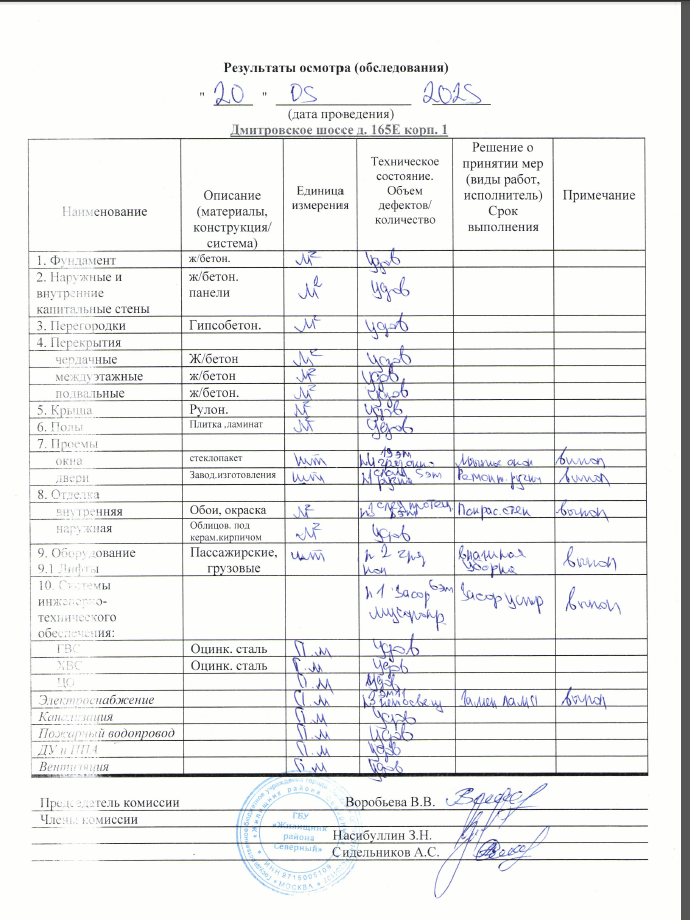 Результаты осмотра (обследования)
" 20 " 05 2025
(дата проведения)
Дмитровское шоссе д. 165Е корп. 1
Наименование Описание (материалы, конструкция/ система) Единица измерения Техническое состояние. Объем дефектов/ количество Решение о принятии мер (виды работ, исполнитель) Срок выполнения Примечание
1. Фундамент ж/бетон. м2 удов
2. Наружные и внутренние капитальные стены ж/бетон. панели м2 удов
3. Перегородки Гипсобетон. м2 удов
4. Перекрытия
чердачные Ж/бетон м2 удов
междуэтажные ж/бетон м2 удов
подвальные ж/бетон. м2 удов
5. Крыша Рулон. м2 удов
6. Полы Плитка ,ламинат м2 удов
7. Проемы
окна стеклопакет шт 19 эт выпол
двери Завод.изготовления шт ручка 5 эт Ремонт ручки выпол
8. Отделка
внутренняя Обои, окраска м2 выпол
наружная Облицов. под керам.кирпичом м2 удов
9. Оборудование
9.1 Лифты Пассажирские, грузовые шт п 2 гря пол влажная уборка выпол
10. Системы инженерно-технического обеспечения: п 1 засор 6 эт засор устр выпол
ГВС Оцинк. сталь П.м удов
ХВС Оцинк. сталь П.м удов
ЦО П.м удов
Электроснабжение П.м выпол
Канализация П.м удов
Пожарный водопровод П.м удов
ДУ и ППА П.м удов
Вентиляция П.м удов
Председатель комиссии Воробьева В.В.
Члены комиссии
Насибуллин З.Н.
Сидельников А.С.
ГБУ
«Жилищник
района
Северный»